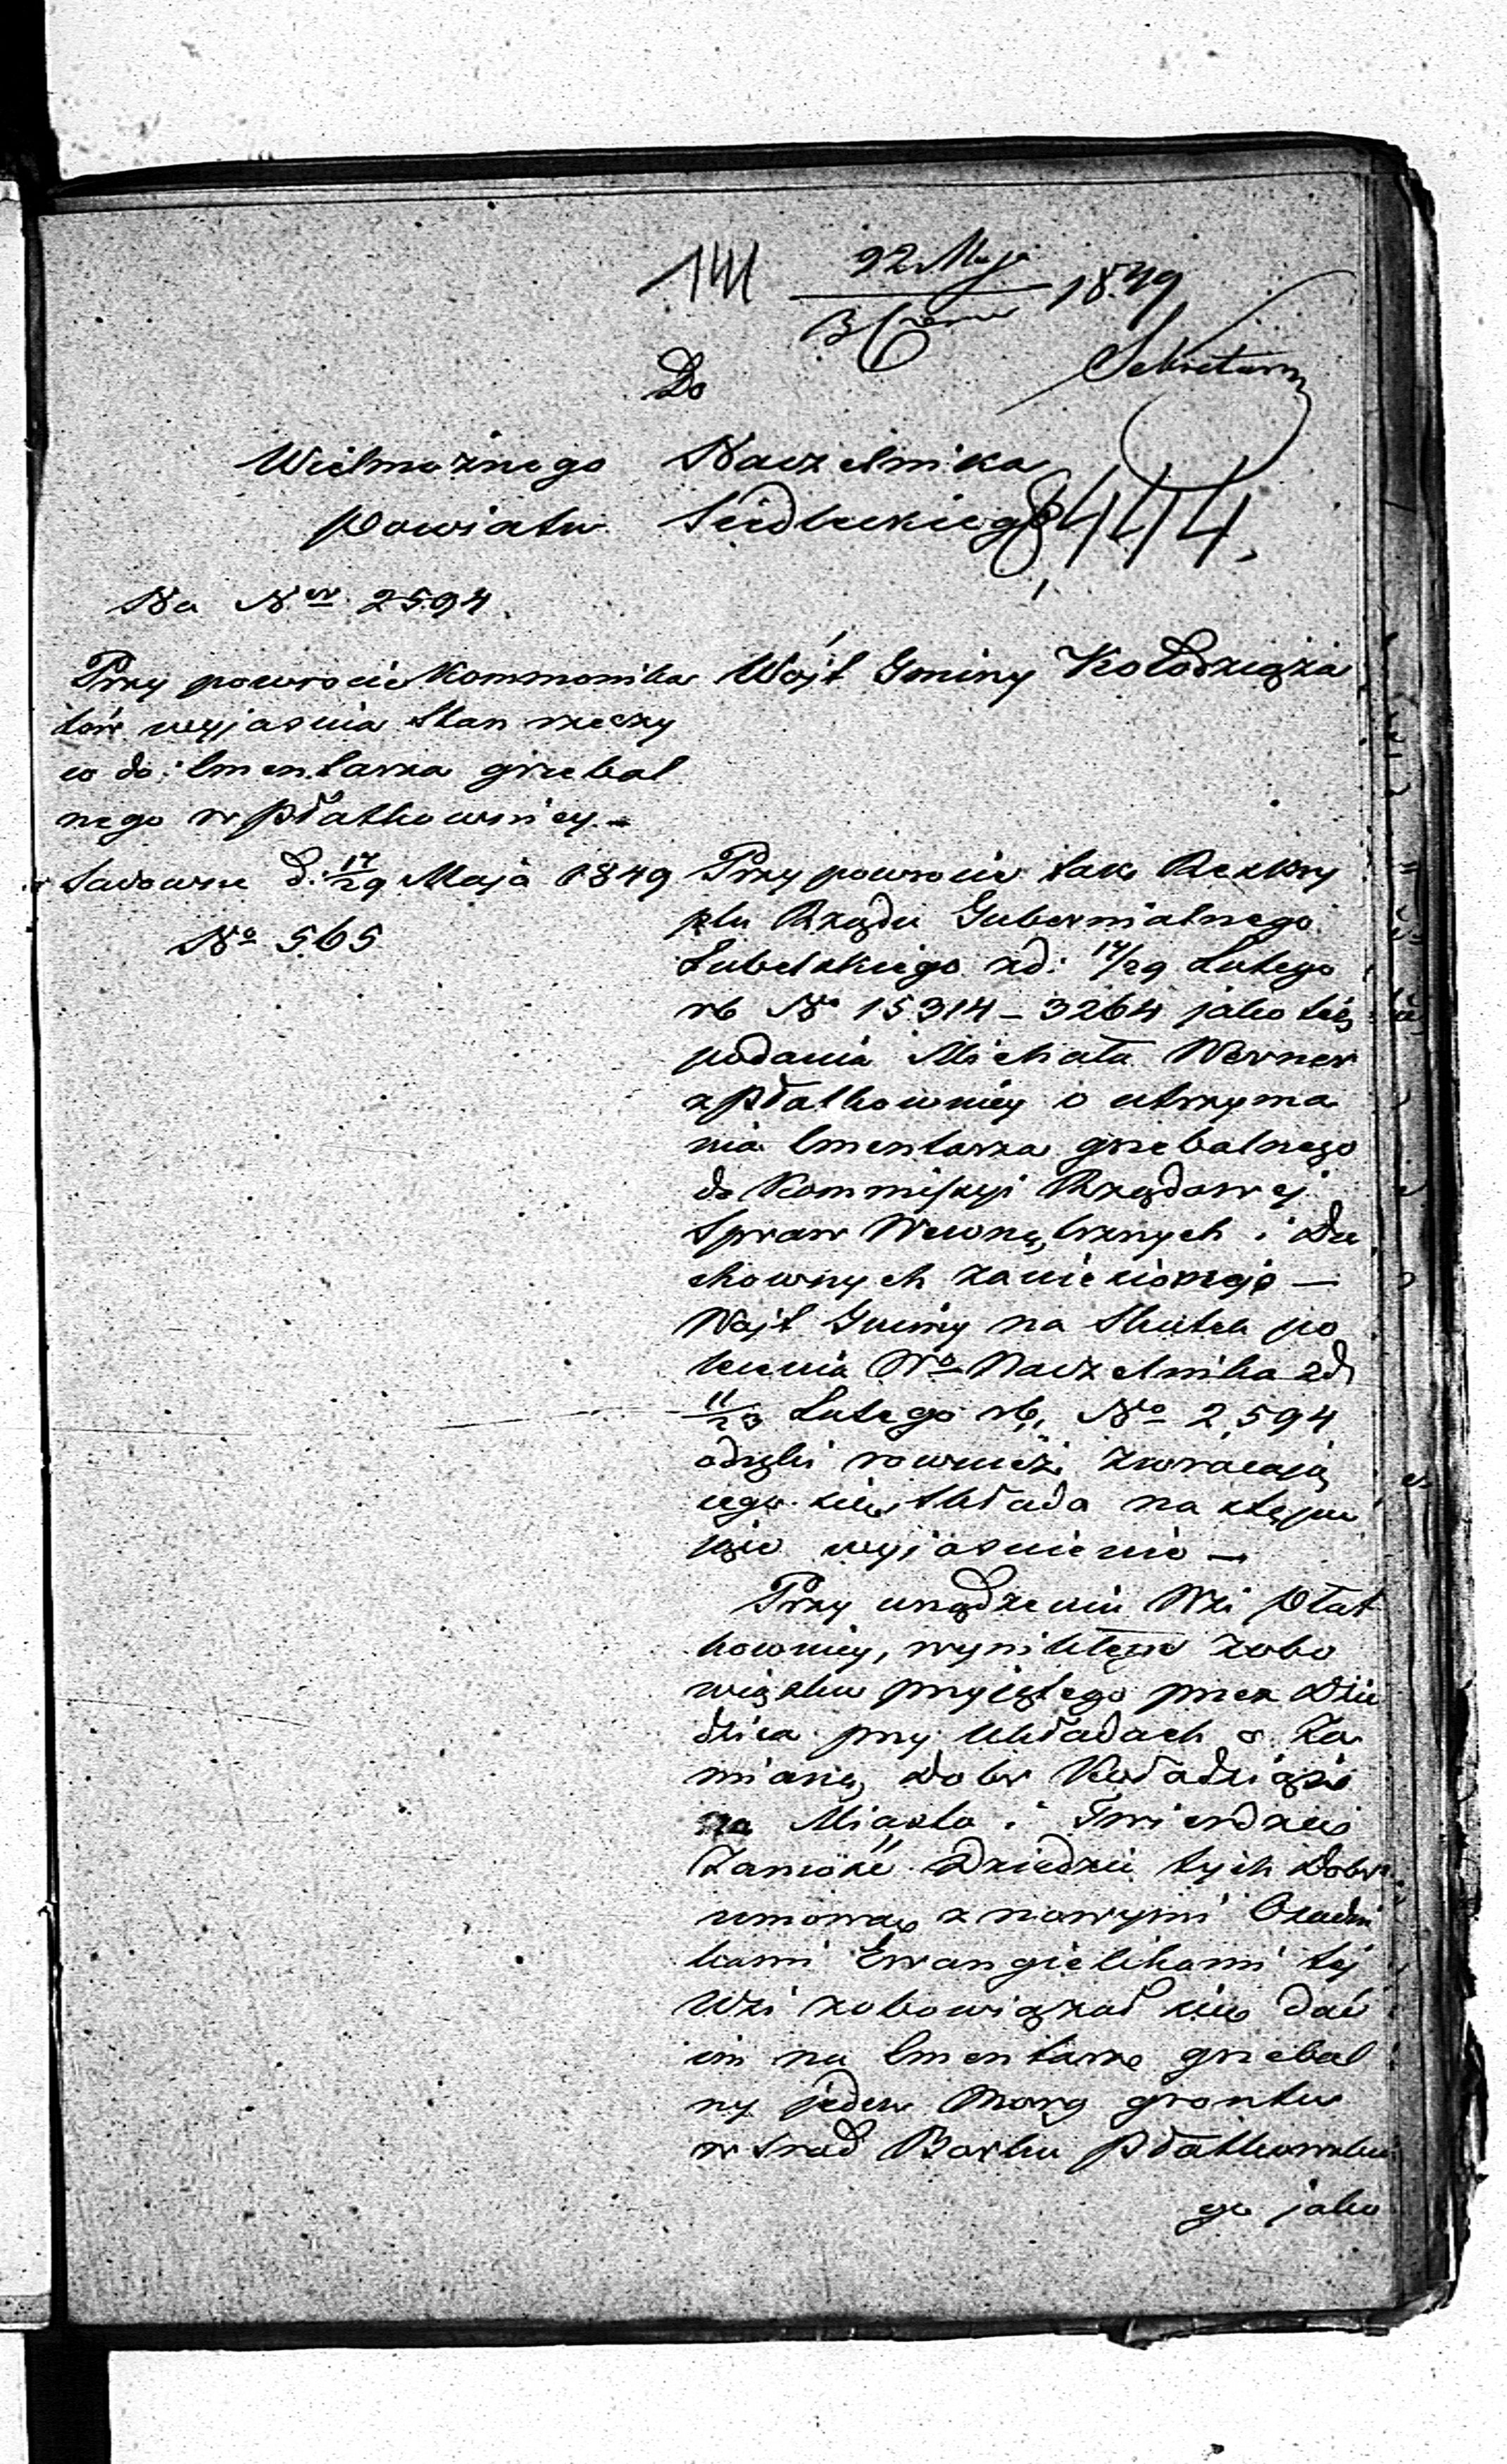 141 22 Maja 1849
3 Czerw
Sekretarz
Do
Wielmożnego Naczelnika
Powiatu Siedleckiego
8444.
Na Ner 2594.
Przy powrocie kommonika
tów wyjasnia stan rzeczy
co do cmentarza grzebal
nego w Płatkownicy –
Sadowne d: 17/29 Maja 1849
No 565
Wójt Gminy Kołodziąża
Przy powrocie tak Reskry
ptu Rządu Gubernialnego
Lubelskiego z d: 17/29 Lutego
rb No 15314 – 3264 jako też
podania Michała Werner
z Płatkownicy o utrzyma
nia cmentarza grzebalnego
do Kommissyi Rządowej
Spraw Wewnętrznych i Du
chownych zaniesionego —
Wójt Gminy na skutek po
lecenia Wo Naczelnika z d
11/23 Lutego rb, No 2,594
odręli rownież zwracają
cego się składa na stępu
jące wyjasnienie —
Przy urządzeniu Wsi Płat
kownicy, wynikłem zobo
wiązku przyjętego przez Dzie
dzica przy układach o Za
mianę dobr Kołodziąż
na Miasto i Twierdzę
Zamość Dziedzic tych Dobr
umową z nowymi Osadni
kami Ewangielikami tej
Wsi zobowiązał się dać
im na cmentarz grzebal
ny jeden Morg grontu
w środ Borku Płatkowskie
go jako